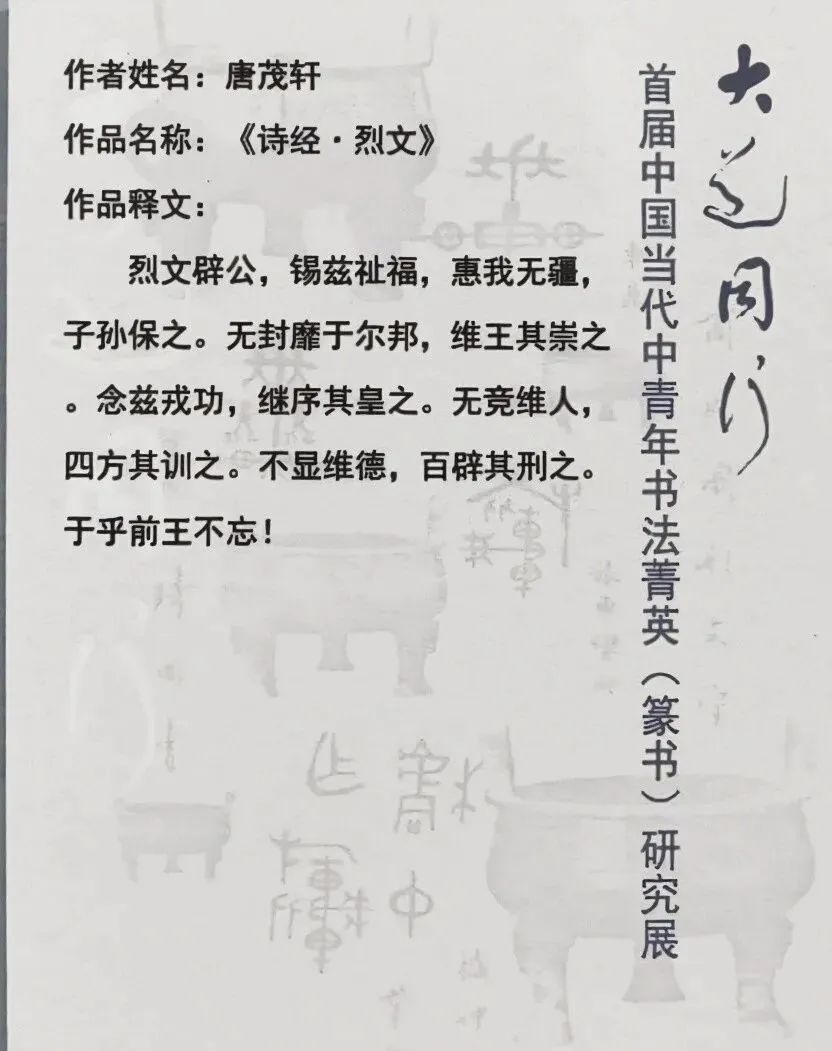 作者姓名：唐茂轩
作品名称：《诗经·烈文》
作品释文：
烈文辟公，锡兹祉福，惠我无疆，
子孙保之。无封靡于尔邦，维王其崇之
。念兹戎功，继序其皇之。无竞维人，
四方其训之。不显维德，百辟其刑之。
于乎前王不忘！
大道同行
首届中国当代中青年书法菁英（篆书）研究展